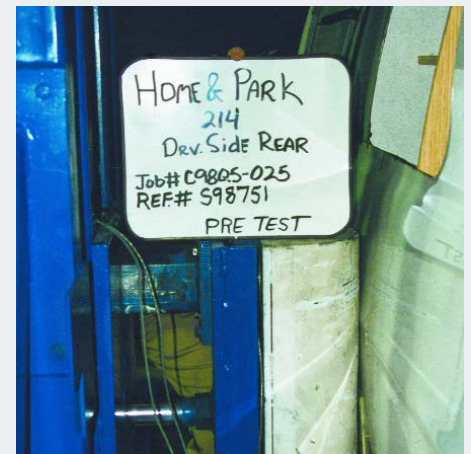 HOME & PARK
214
DRV. SIDE REAR
Job# C9805-025
REF.# S98751
PRE TEST